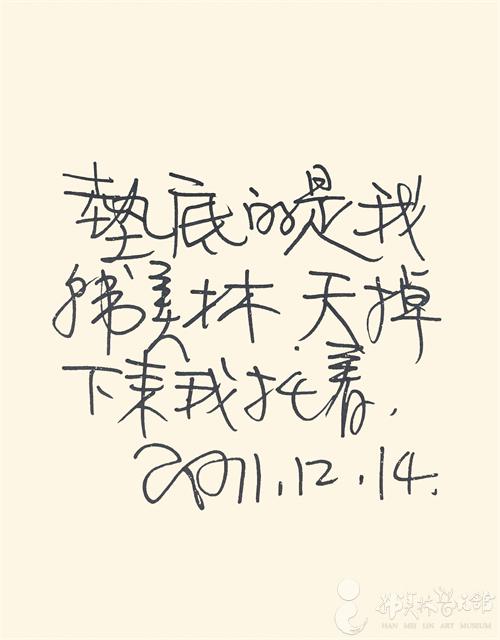 墊底的是我
韩美林.天掉
下来我托着.
2011.12.14.
韩美林艺术馆
HAN MEI LIN ART MUSEUM